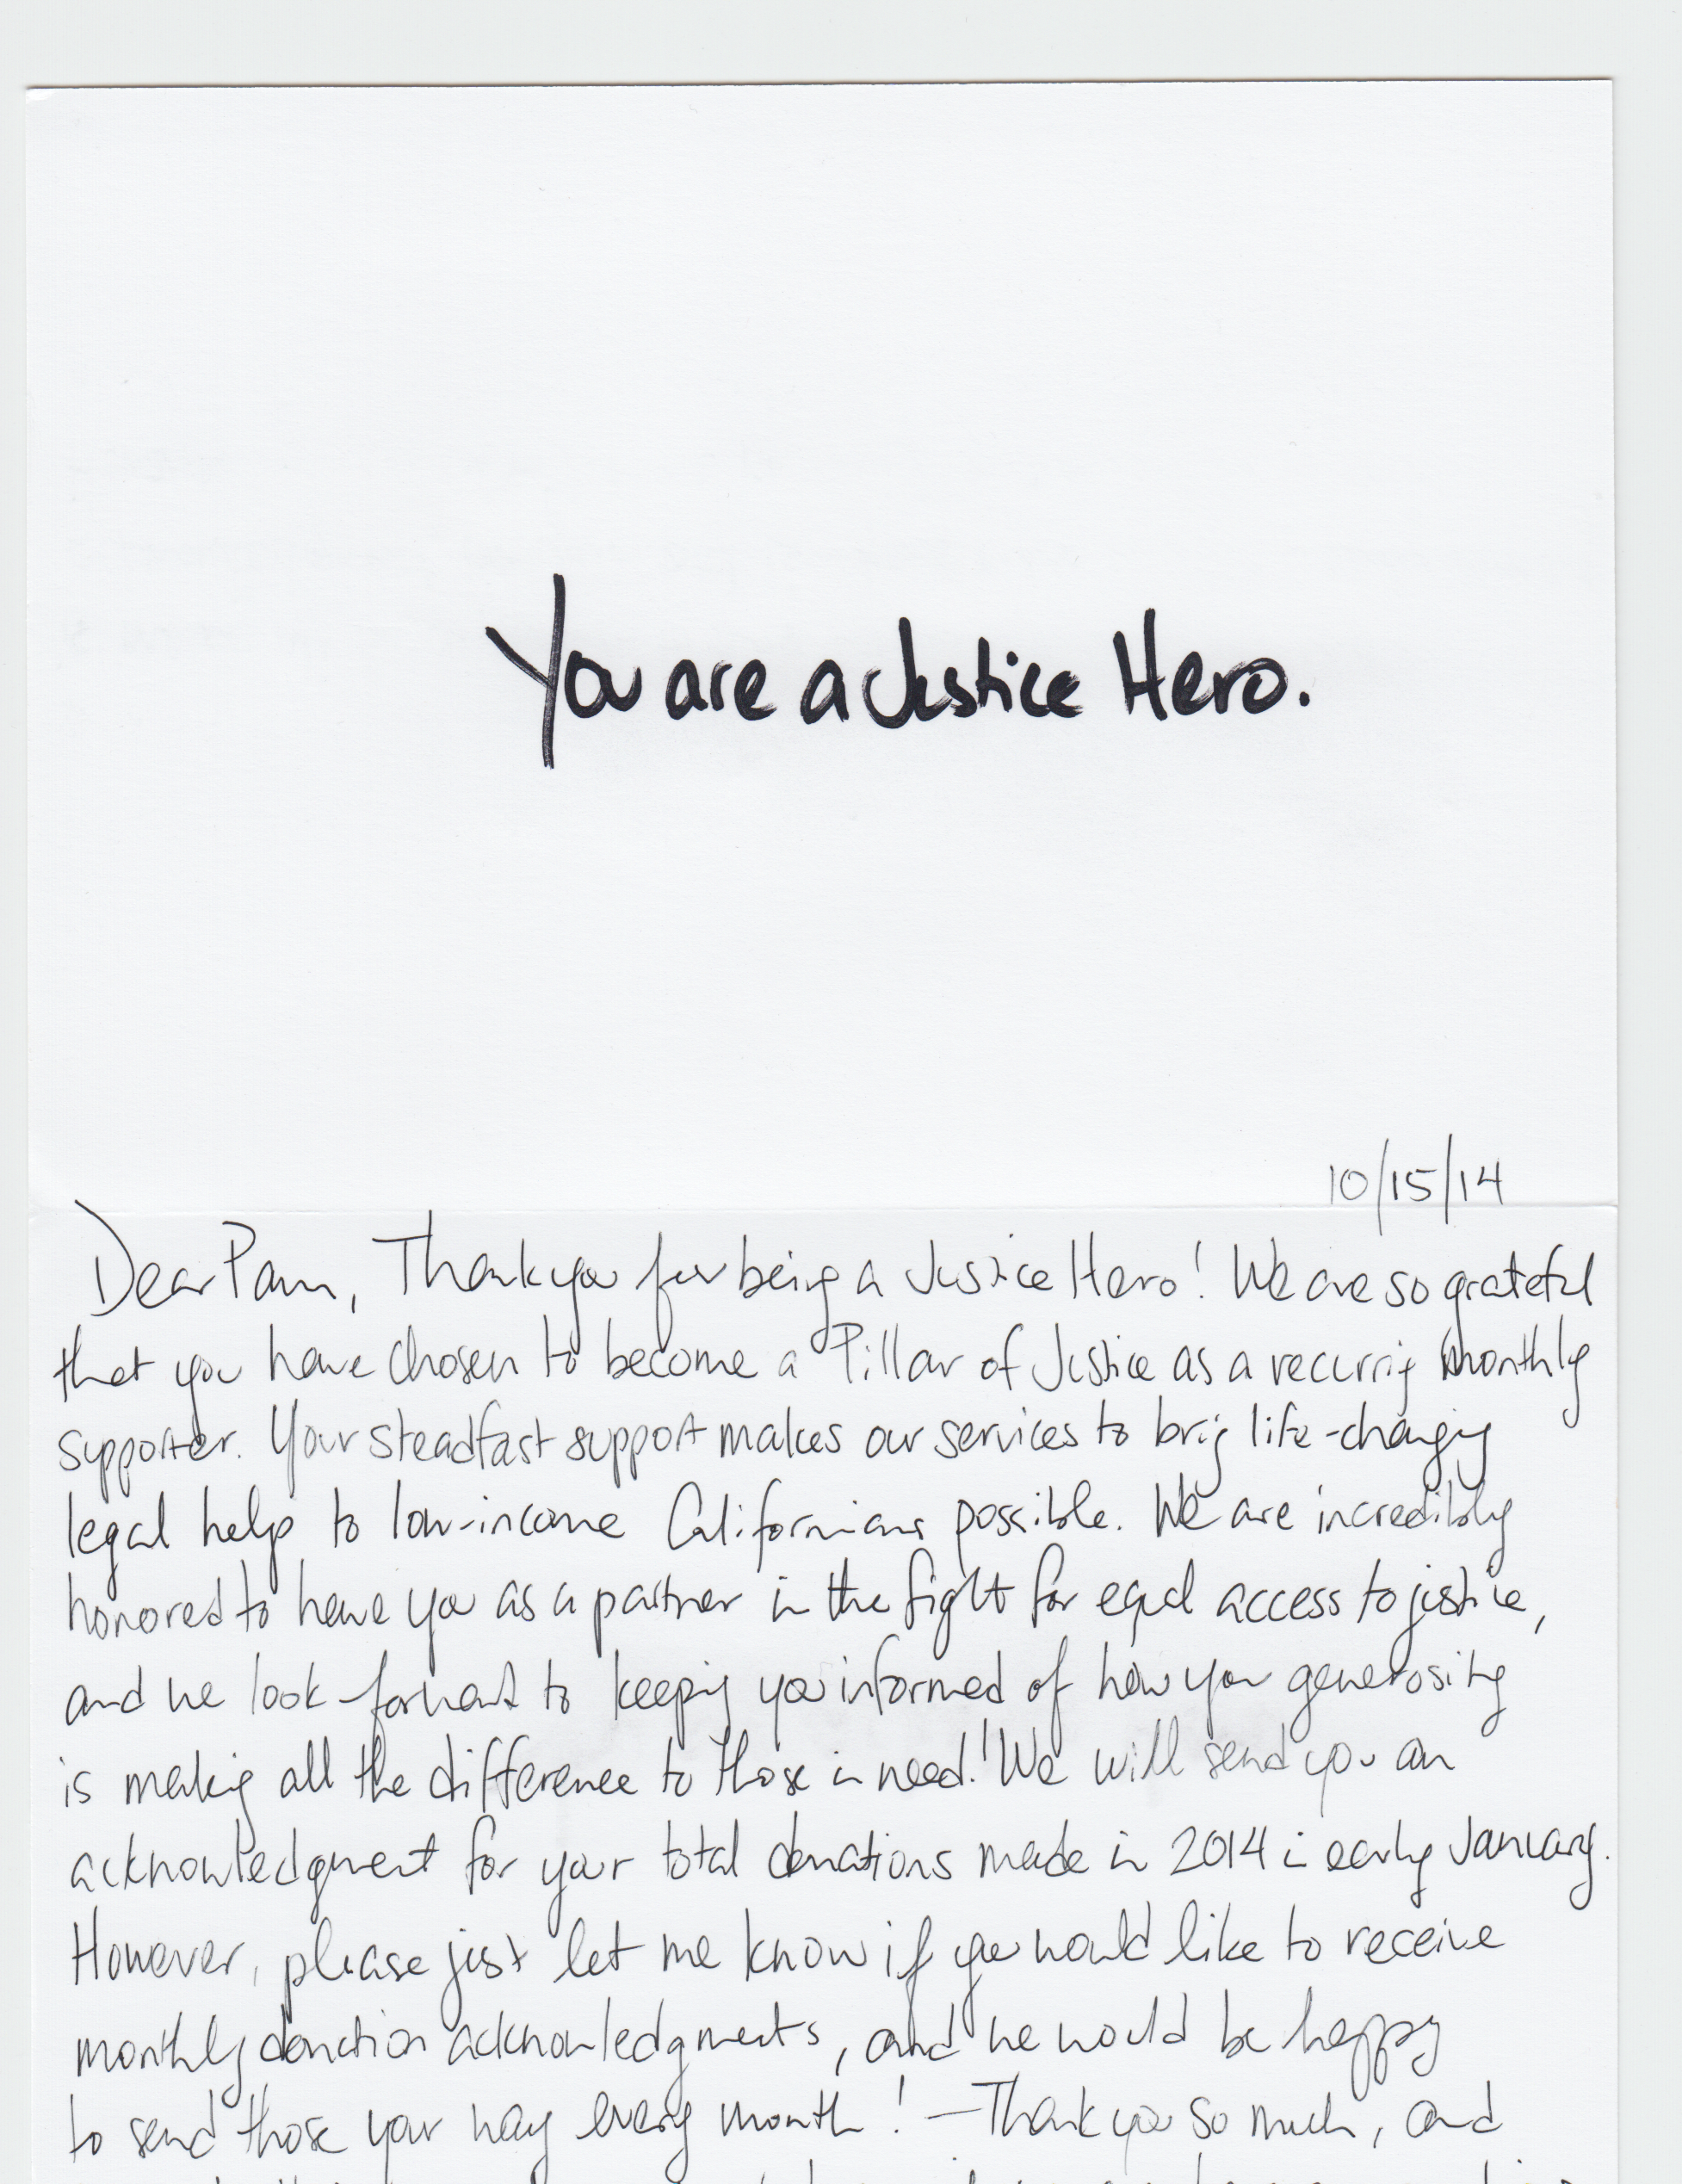 You are a Justice Hero.
10/15/14
Dear Pam, Thank you for being a Justice Hero! We are so grateful
that you have chosen to become a Pillar of Justice as a recurring monthly
supporter. Your steadfast support makes our services to bring life-changing
legal help to low-income Californians possible. We are incredibly
honored to have you as a partner in the fight for equal access to justice,
and we look forward to keeping you informed of how your generosity
is making all the difference to those in need! We will send you an
acknowledgment for your total donations made in 2014 in early January.
However, please just let me know if you would like to receive
monthly donation acknowledgments, and we would be happy
to send those your way every month! - Thank you so much, and